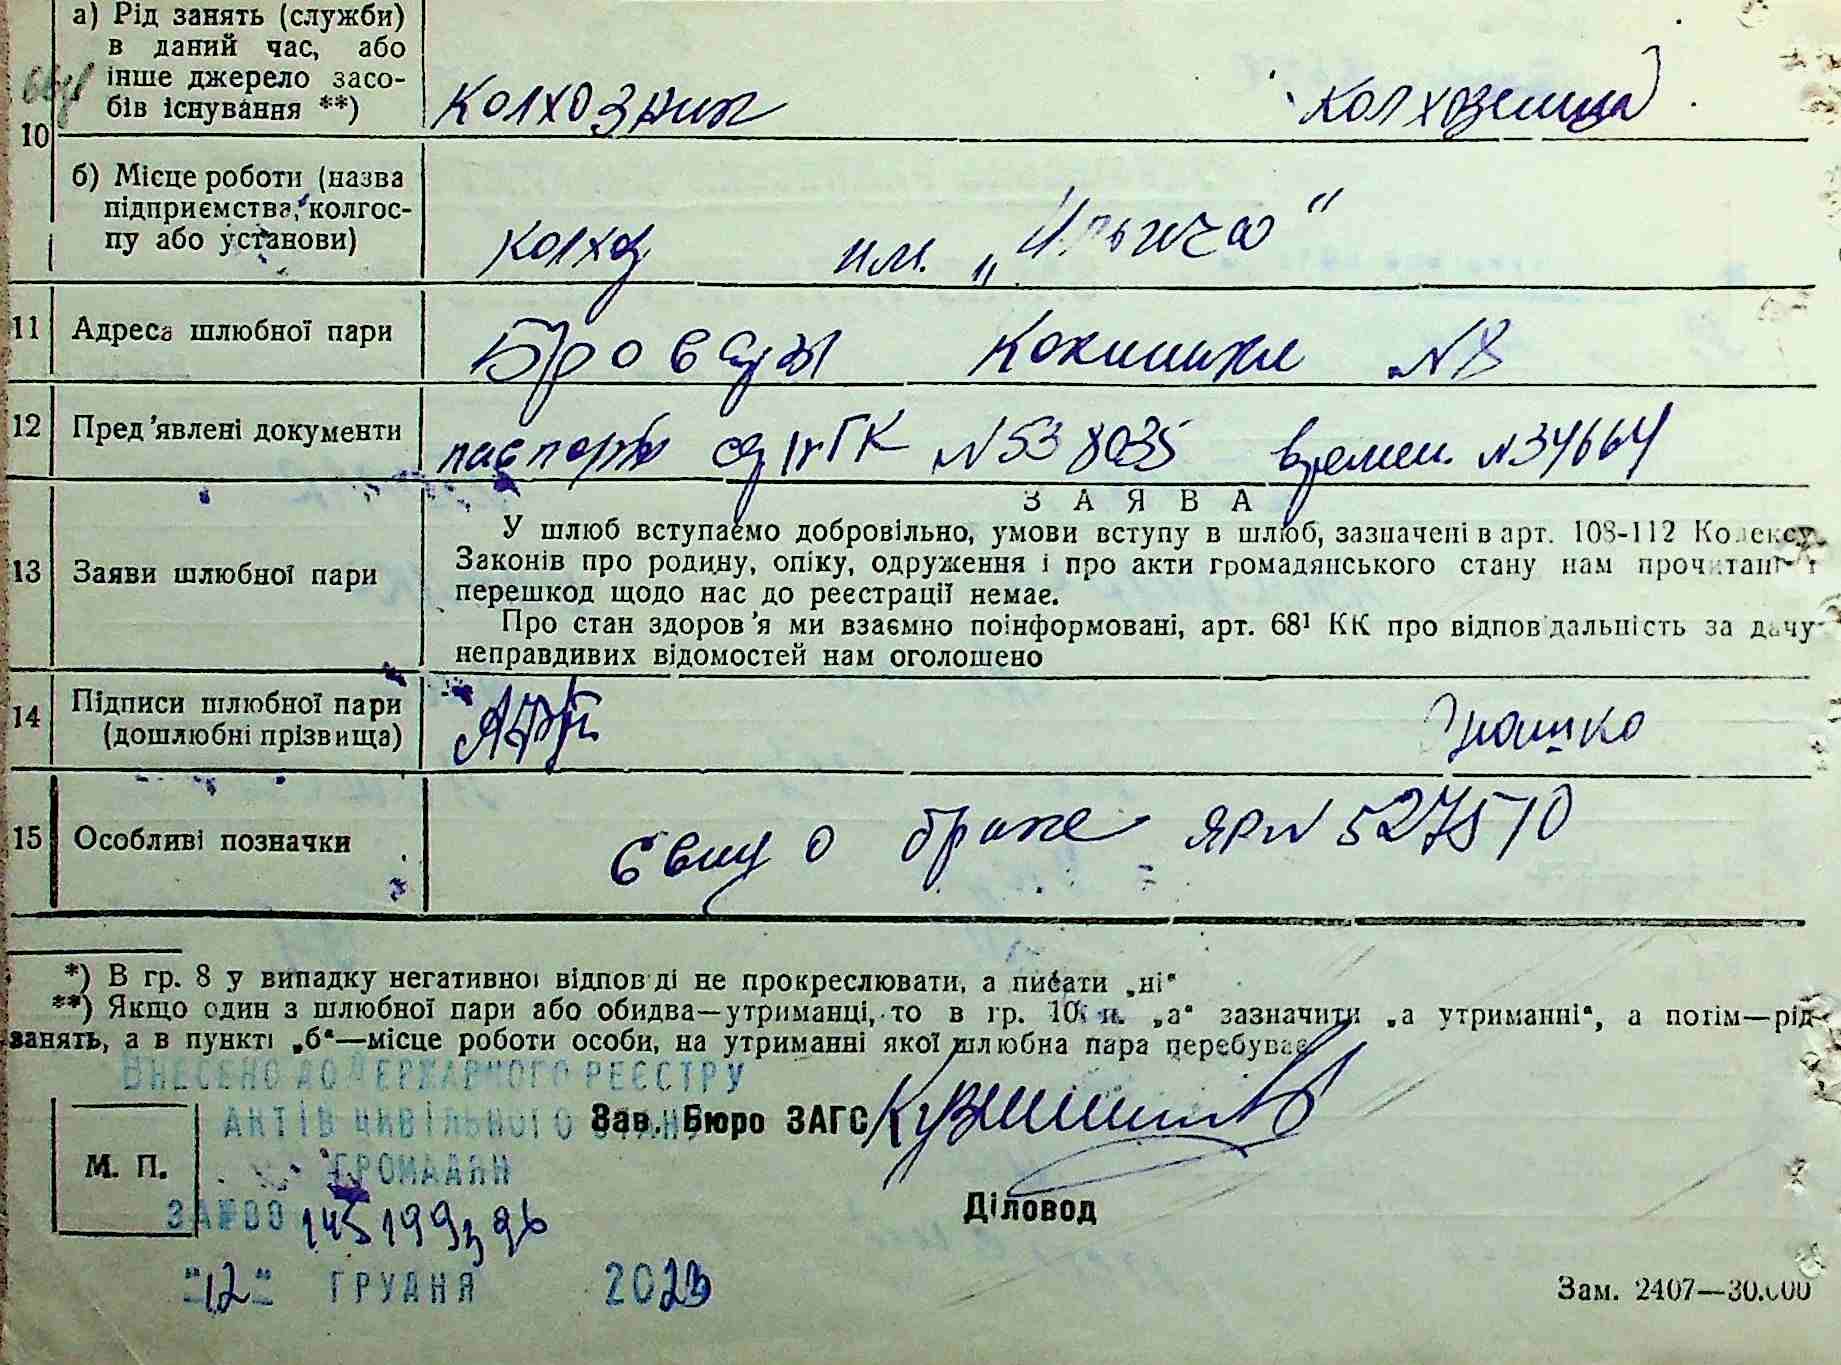 а) Рід занять (служби)
в даний час, або
інше джерело засо-
бів існування **)
колхозник колхозница
10
б) Місце роботи (назва
підприємства, колгос-
пу або установи)
колхоз им. „Ильича"
11 Адреса шлюбної пари
Бровары №8
12 Пред'явлені документи
паспорта №538035 времен. №34664
З А Я В А
13 Заяви шлюбної пари
У шлюб вступаємо добровільно, умови вступу в шлюб, зазначені в арт. 108-112 Кодексу
Законів про родину, опіку, одруження і про акти громадянського стану нам прочитані і
перешкод щодо нас до реєстрації немає.
Про стан здоров'я ми взаємно поінформовані, арт. 68¹ КК про відповідальність за дачу
неправдивих відомостей нам оголошено
14 Підписи шлюбної пари
(дошлюбні прізвища)
15 Особливі позначки
о браке ЯР№ 527510
*) В гр. 8 у випадку негативної відповіді не прокреслювати, а писати „ні"
**) Якщо один з шлюбної пари або обидва—утриманці, то в гр. 10 п. „а" зазначити „а утриманні", а потім—рід
занять, а в пункті „б"—місце роботи особи, на утриманні якої шлюбна пара перебуває
ВНЕСЕНО ДО ДЕРЖАВНОГО РЕЄСТРУ
АКТІВ ЦИВІЛЬНОГО СТАНУ
ГРОМАДЯН
Зав. Бюро ЗАГС
М. П.
Діловод
"12" ГРУДНЯ 2023
Зам. 2407—30.000